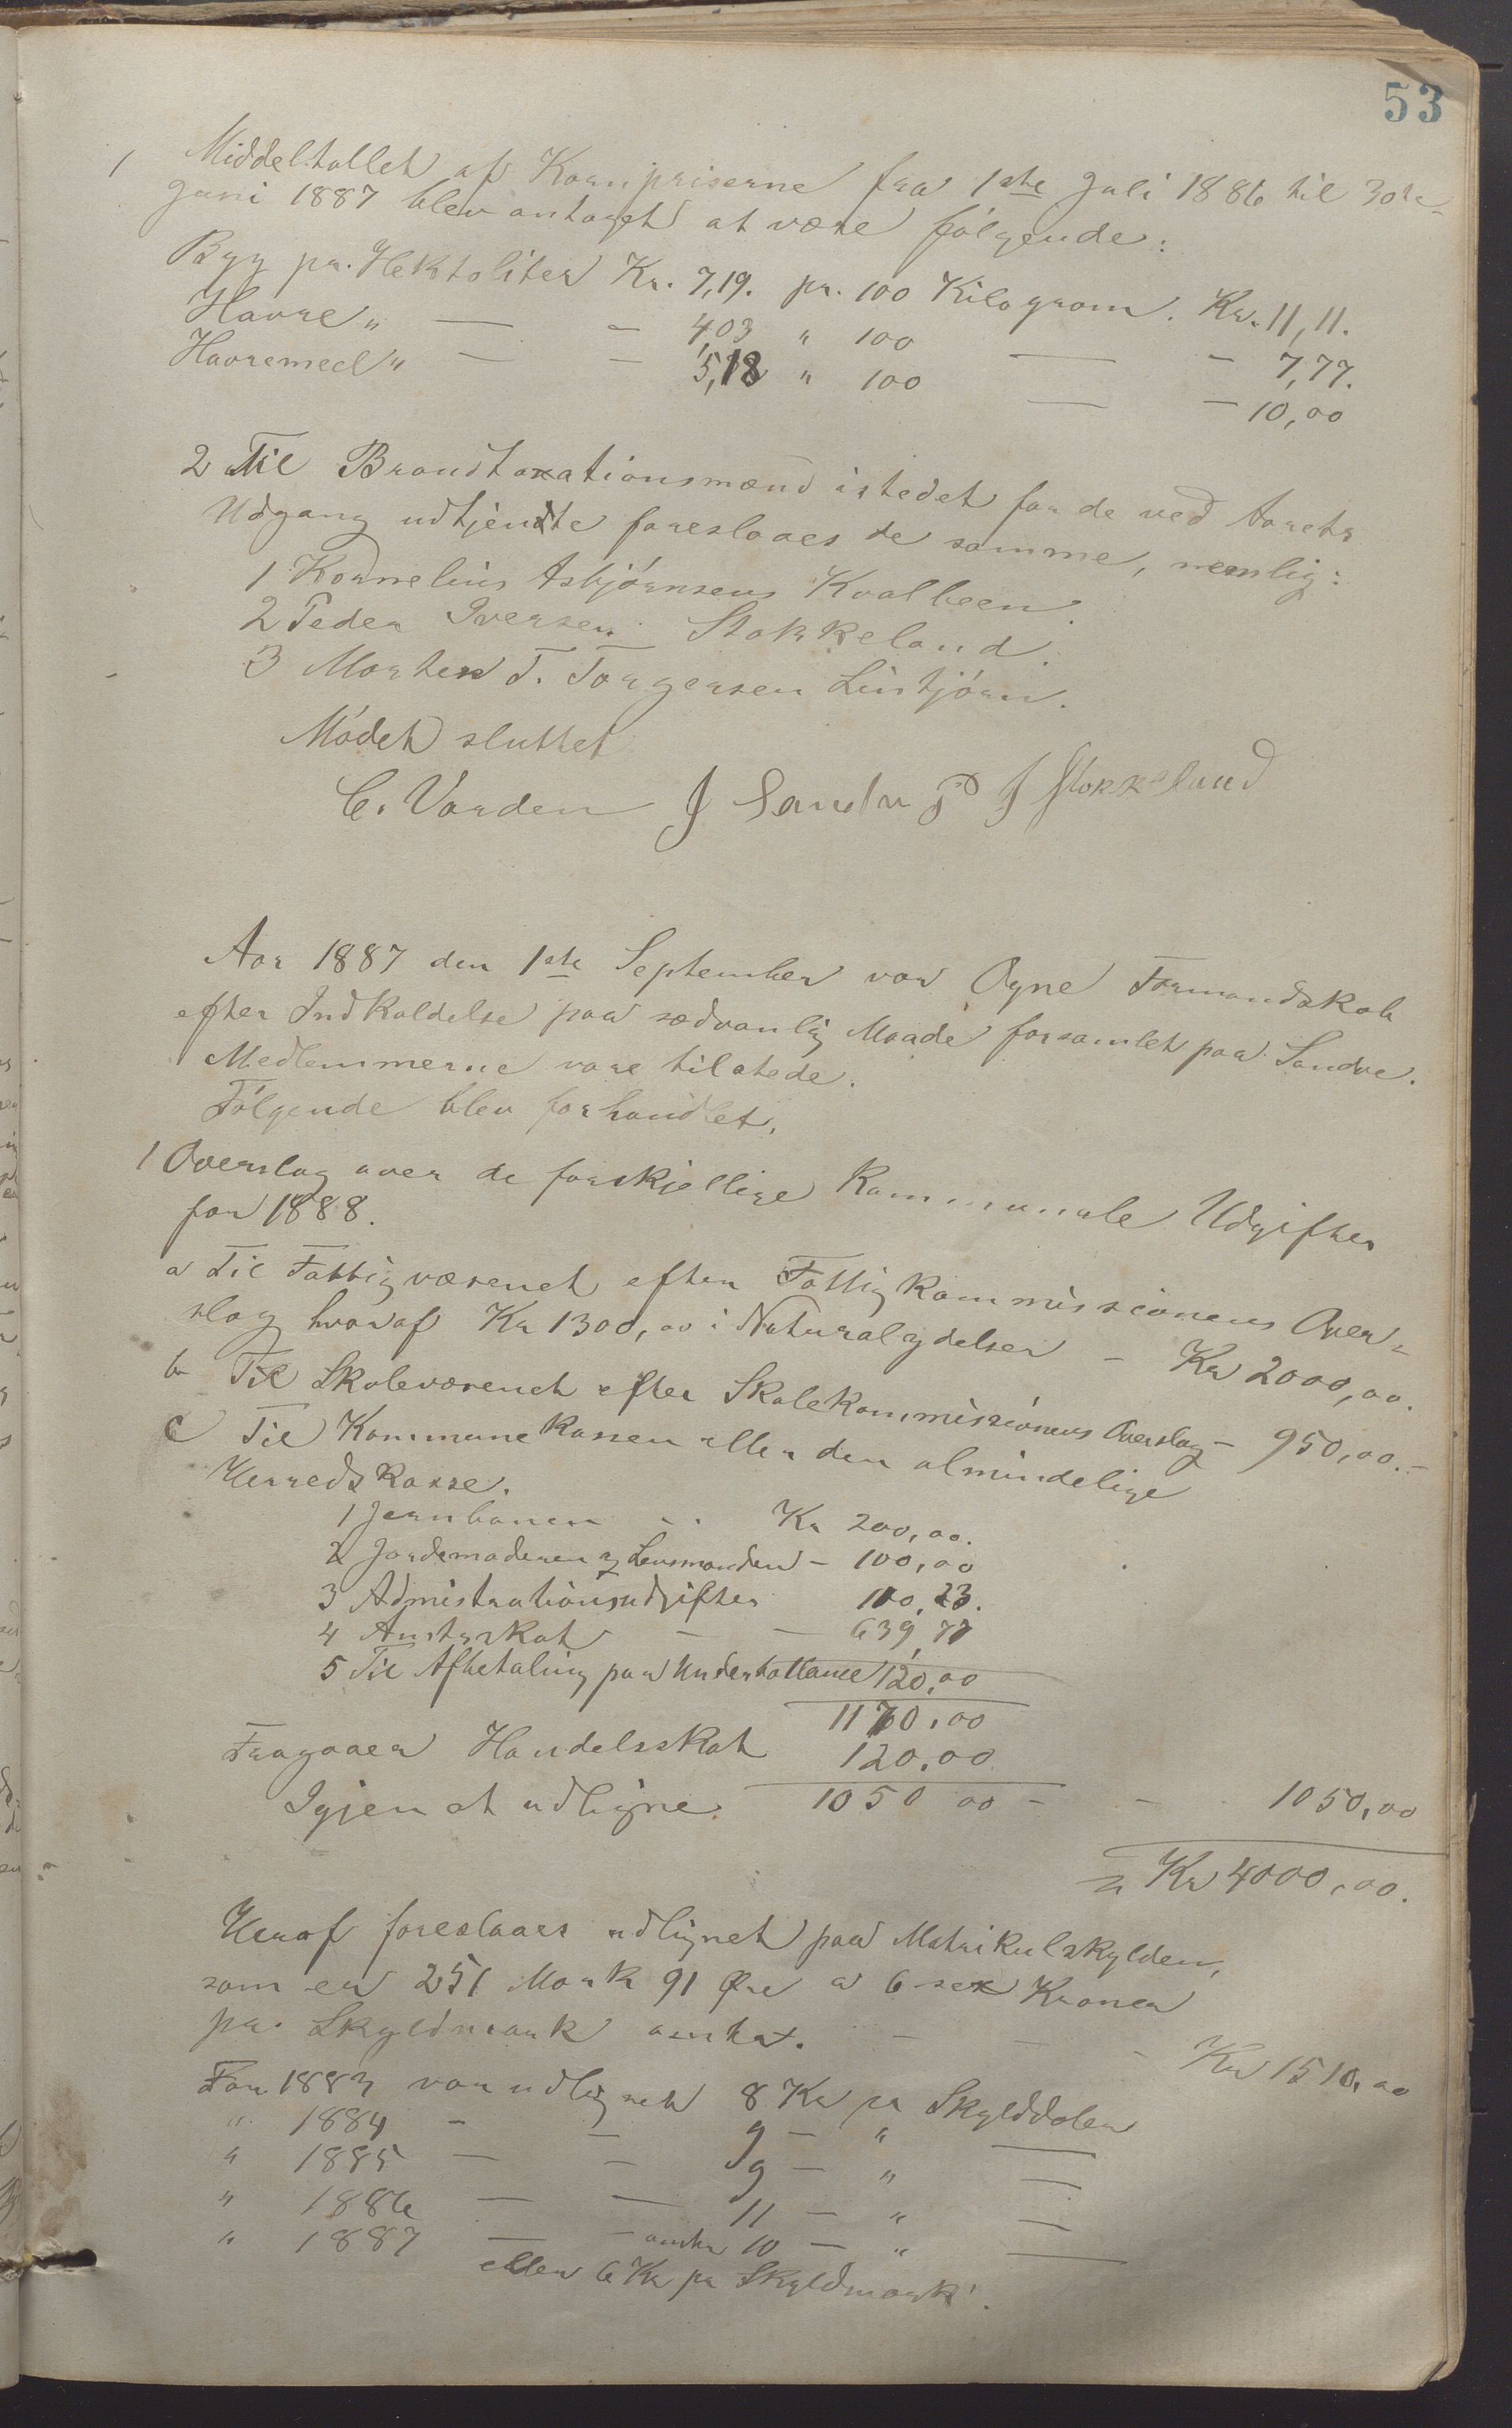 53
1 Middeltallet af Kornpriserne fra 1ste Juli 1886 til 30te
Juni 1887 blev antaget at være følgende:
Byg pr. Hektoliter Kr. 7,19. pr. 100 Kilogram. Kr. 11,11.
Havre " — - 4,03 " 100 — - 7,77.
Havremeel " — - 5,18 " 100 — - 10,00
2 Til Brandtaxationsmænd istedet for de ved Aarets
Udgang udtjendte foreslaaes de samme, nemlig:
1 Kornelius Asbjørnsens Kvalbeen.
2 Peder Iversen Stokkeland.
3 Morten T. Torgersen Lintjørn.
Mødet sluttet
C. Varden J Sandve P J Stokkeland
Aar 1887 den 1ste September var Ogne Formandskab
efter Indkaldelse paa sædvanlig Maade forsamlet paa Sandve.
Medlemmerne vare tilstede.
Følgende blev forhandlet.
1 Overslag over de forskjellige Kommunale Udgifter
for 1888.
a Til Fattigvæsenet efter Fattigkommissionens Over-
slag hvoraf Kr 1300,00 i Naturalydelser - Kr 2000,00.
b Til Skolevæsenet efter Skolekommissionens Overslag - 950,00.-
c Til Kommunekassen eller den almindelige
Herredskasse.
1 Jernbanen .. Kr 200,00.
2 Jordemoderen og Lensmanden - 100,00
3 Admistrationsudgifter 110,23.
4 Amtsskat - - 639,77
5 Til Afbetaling paa Underballance 120,00
1170,00
Fragaaer Handelsskat 120,00
Igjen at udligne. 1050 00 - - 1050,00
Kr 4000,00.
Heraf foreslaaes udlignet paa Matrikulskylden,
som er 251 Mark 91 Øre a 6 sex Kroner
pr. Skyldmark omtr. - - - Kr 1510,00
For 1883 var udlignet 8 Kr pr Skylddaler
" 1884 - - 9 - " —
" 1885 — - 9 - " —
" 1886 — — 11 - " —
" 1887 — - omtr 10 - " —
eller 6 Kr pr Skyldmark.